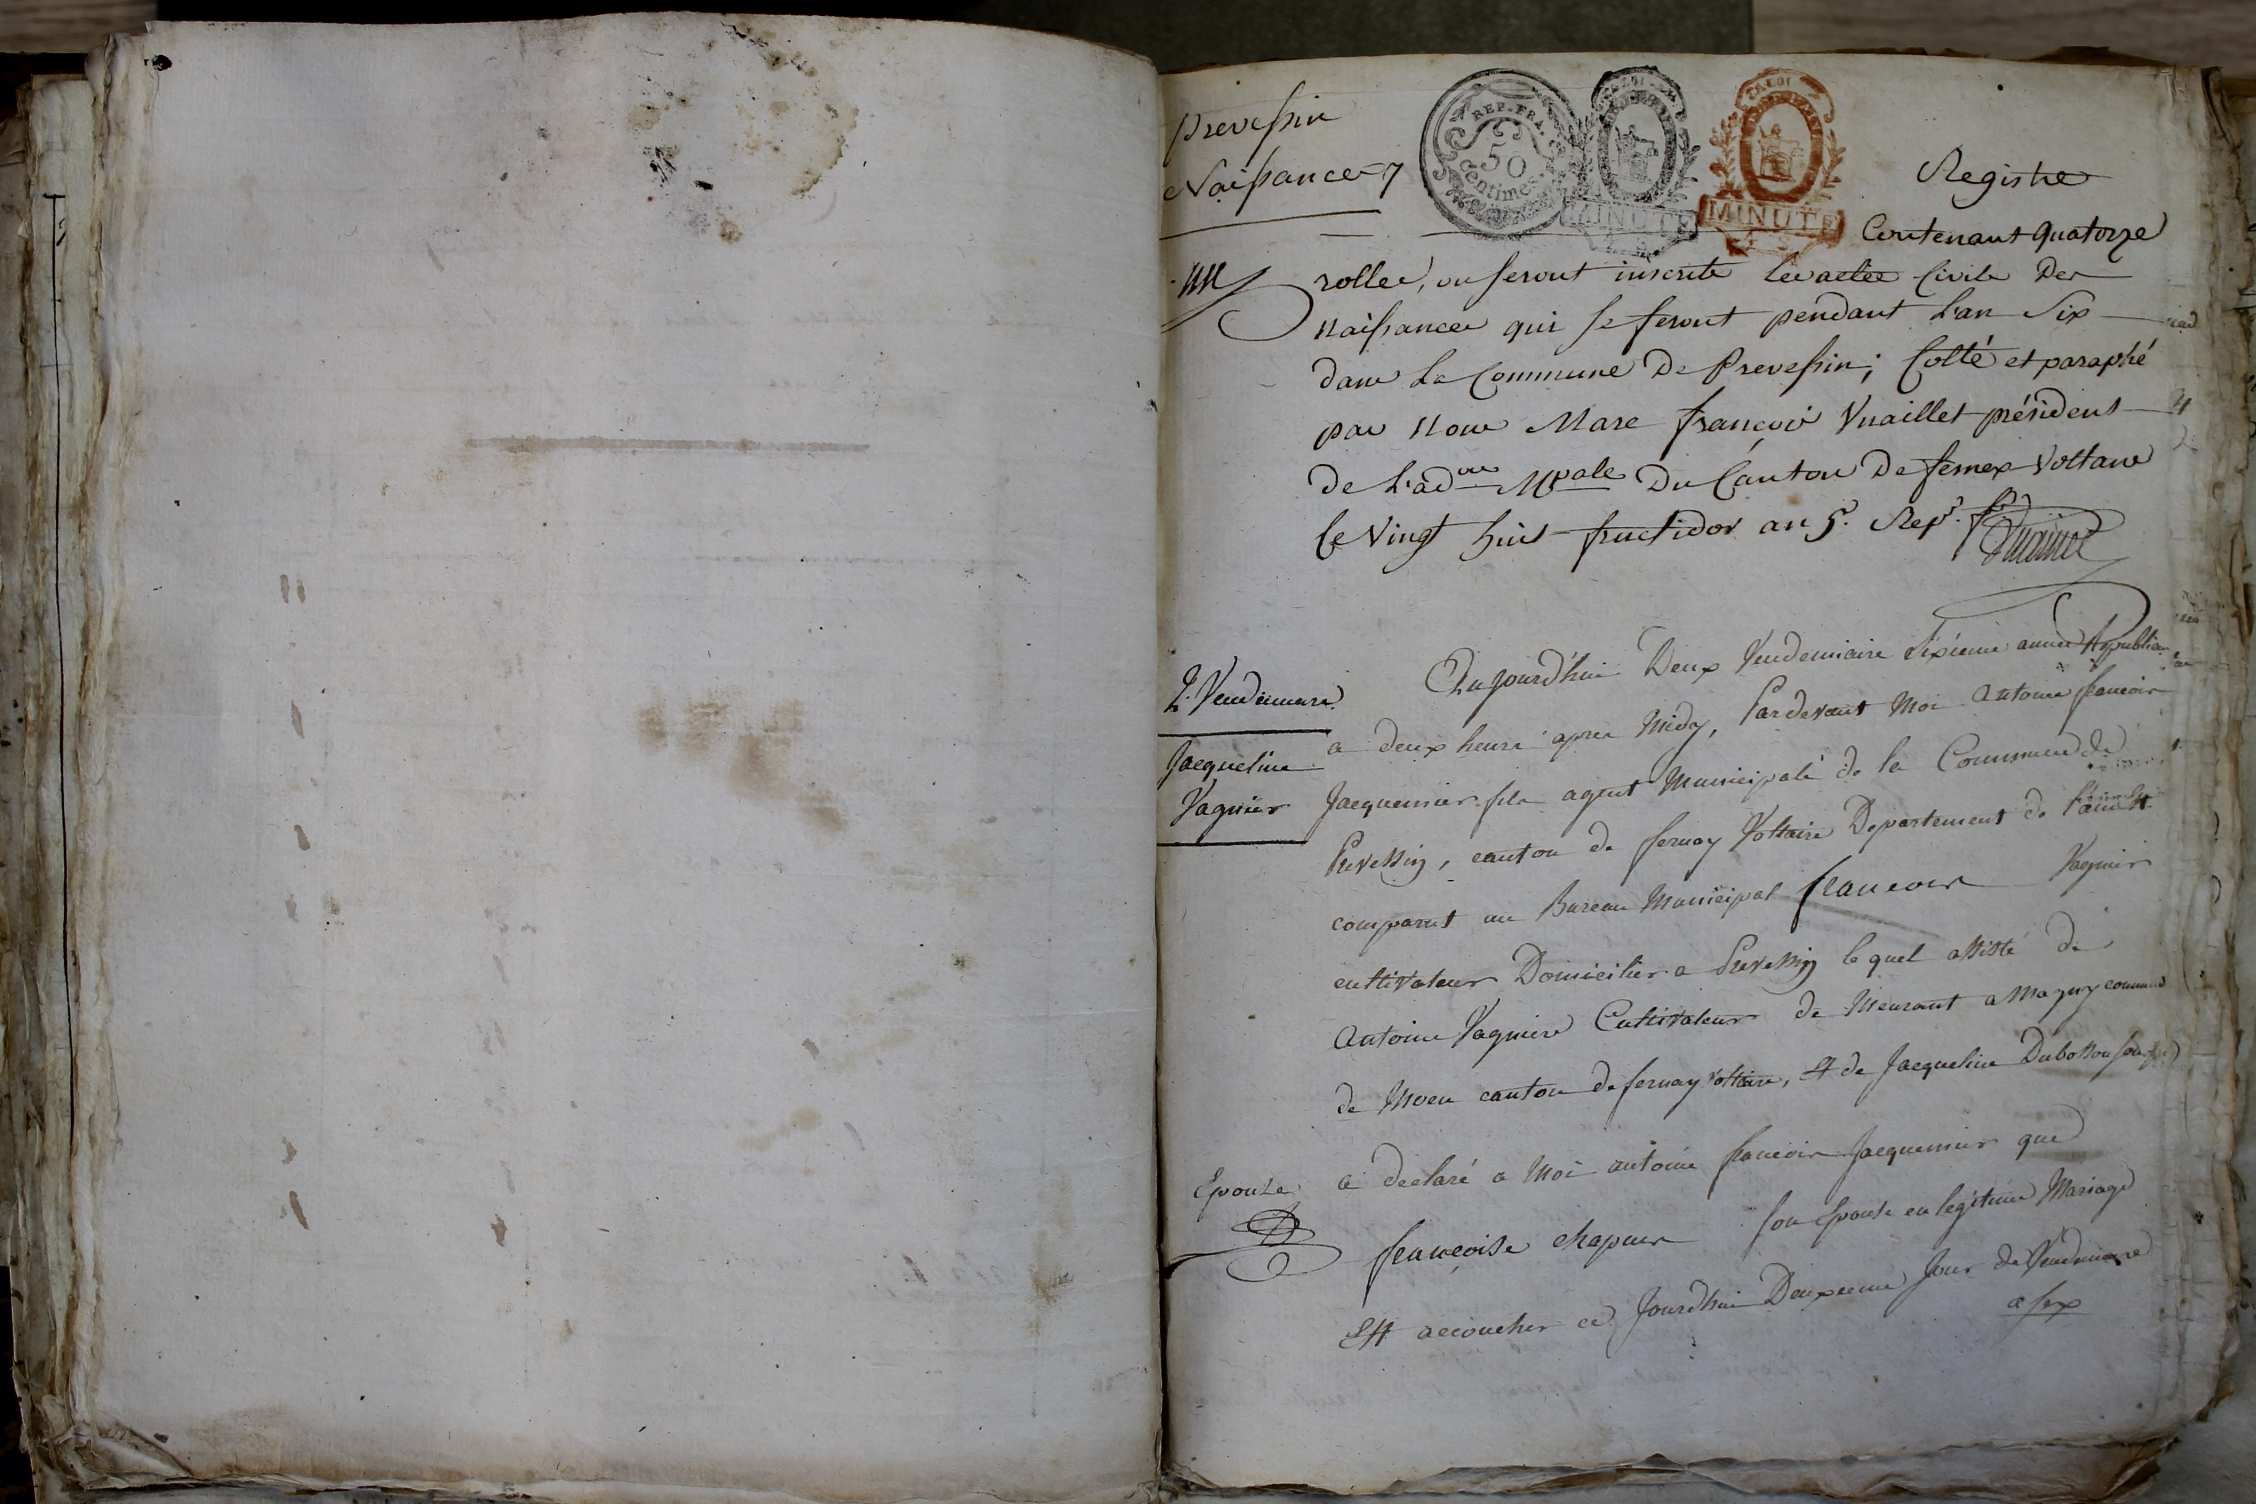 Prevessin
Naissances
REP. FRA.
50
Centimes
MINUTE
MINUTE
Registre
Contenant quatorze
rolles, ou seront inscrits les actes Civils des
naissances qui se feront pendant l'an Six
dans la Commune de Prevessin; Cotté et paraphé
par nous Marc françois Vuaillet président
de l'adon Mpale du Canton de fernex Voltaire
le vingt huit fructidor an 5e. Rep.
2. Vendemiaire
Jacqueline
Vagnier
Aujourd'hui Deux Vendemiaire Sixieme année Republicaine
a deux heures apres Midy, Pardevant Moi antoine francois
Jacquemier fils agent Municipale de la Commune de
Prevessin, canton de fernay Voltaire Departement de l'ain Et
comparut au Bureau Municipal francois Vagnier
cultivateur Domicilier a Prevessin lequel assisté de
antoine Vagniere Cultivateur de Meurant a Magny commune
de Moen canton de fernay Voltaire, Et de Jacqueline Dubosson
a declaré a Moi antoine francois Jacquemier que
Epouse
francoise chapuis son Epouse en legitime Mariage
Est accoucher ce Jourdhui Deuxieme Jour de Vendemiaire
a six